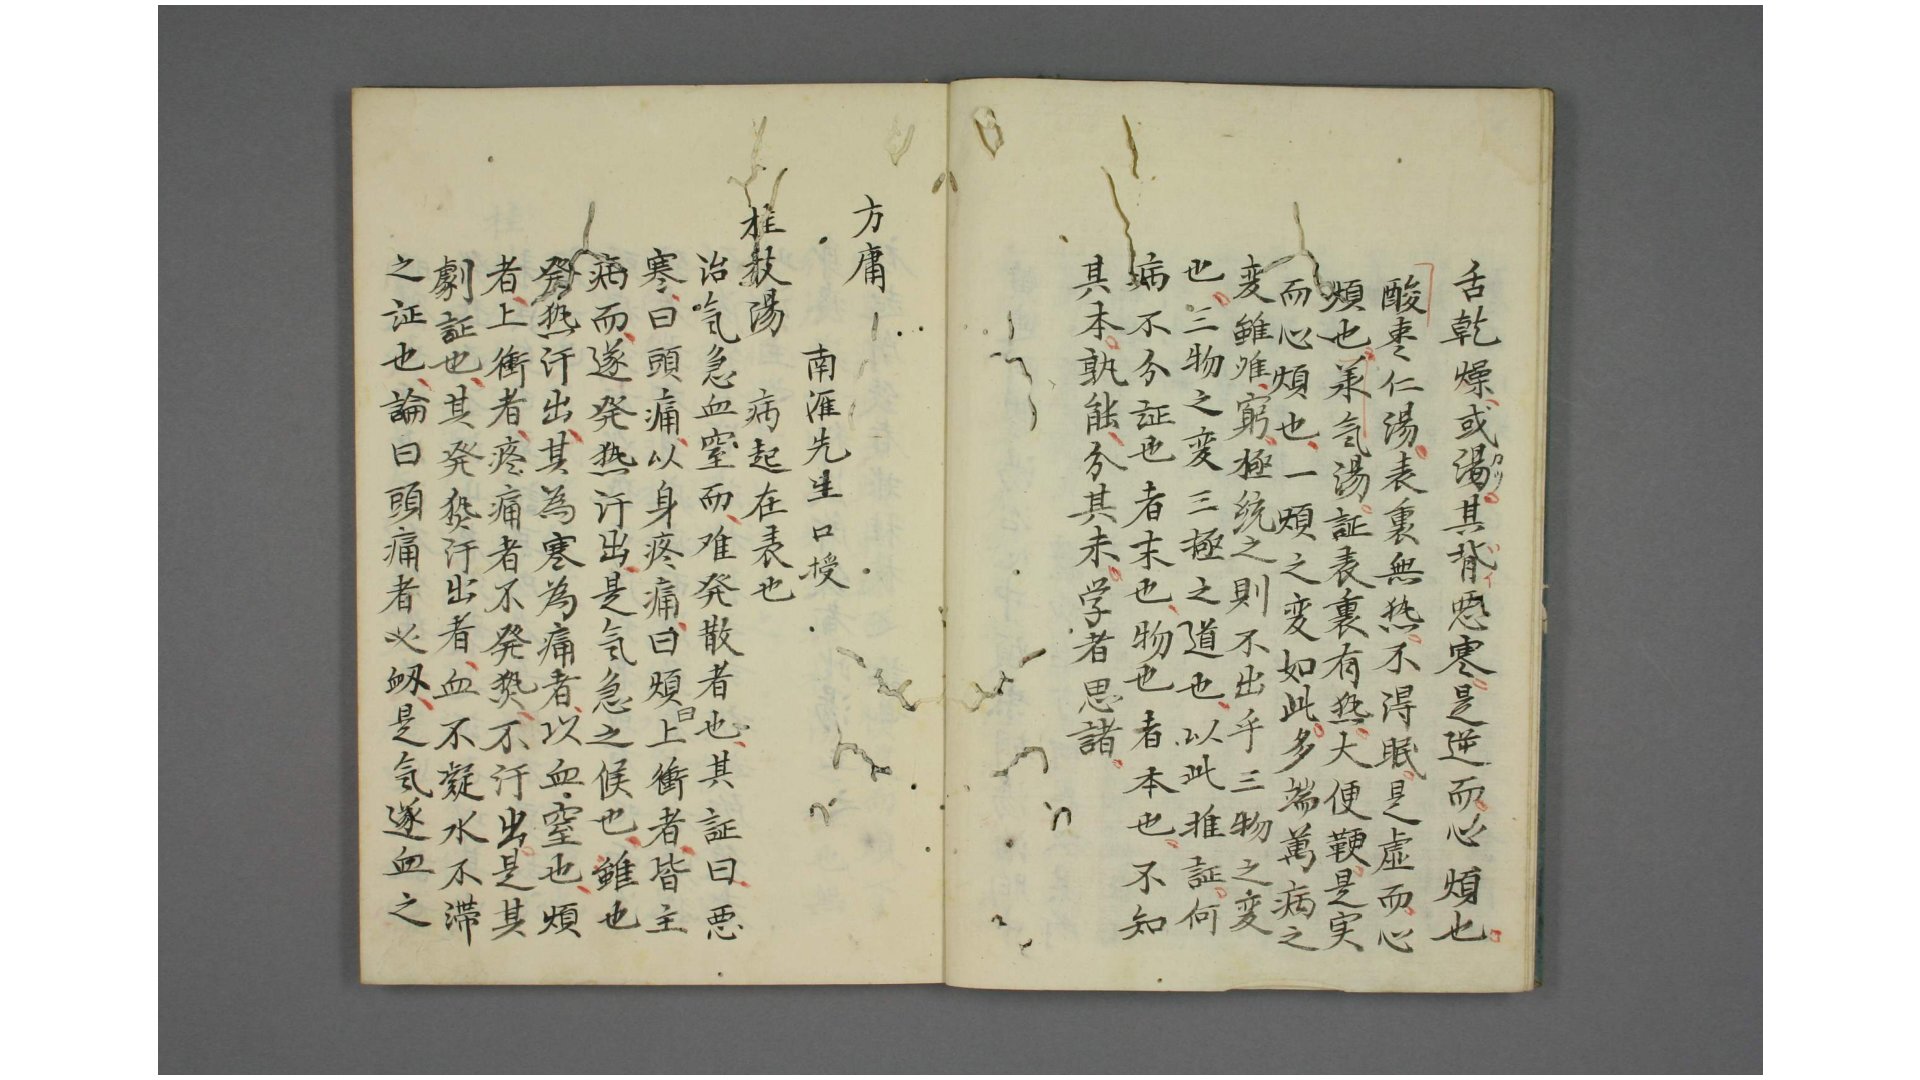 舌乾燥或渇其背悪寒是逆而心煩也
酸棗仁湯表裏無热不得眠是虚而心
煩也承気湯証表裏有热大便鞕是実
而心煩也一煩之変如此多端萬病之
変雖难窮極統之則不出乎三物之変
也三物之変三極之道也以此推証何
病不分証也者末也物也者本也不知
其本孰能分其末学者思諸
方庸
南涯先生口授
桂枝湯 病起在表也
治気急血窒而难発散者也其証曰悪
寒曰頭痛以身疼痛曰煩曰上衝者皆主
病而遂発热汗出是気急之候也雖也
発热汗出其為寒為痛者以血窒也煩
者上衝者疼痛者不発热不汗出是其
劇証也其発热汗出者血不凝水不滞
之証也論曰頭痛者必衂是気遂血之